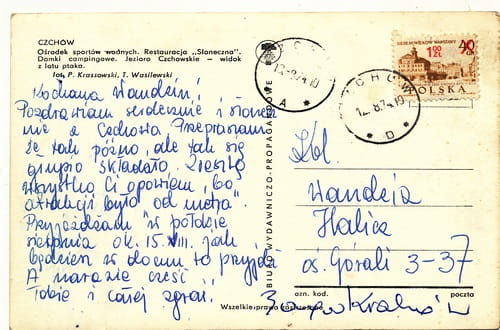 CZCHÓW
Ośrodek sportów wodnych. Restauracja „Słoneczna".
Domki campingowe. Jezioro Czchowskie — widok
z lotu ptaka.
fot. P. Krassowski, T. Wasilewski
Kochana Wandziu!
Pozdrawiam serdecznie i słonecz
nie z Czchowa Przepraszam
że tak późno, ale tak się
głupio składało. Zresztą
wszystko Ci opowiem, bo
atrakcji było "od metra".
Przyjeżdżam w połowie
sierpnia ok. 15.VIII. jak
będziesz w domu to przyjdź
A narazie cześć
Tobie i całej zgrai.
BIURO WYDAWNICZO-PROPAGANDOWE
CZCHÓW
12.-8.74.10
A
CZCHÓW
12.-8.74.10
D
SIEDEM WIEKÓW WARSZAWY
1,00 ZŁ
40
POLSKA
Kol.
Wandzia
Halicz
oś. Górali 3-37
Kraków
ozn. kod.
poczta
Wszelkie prawa zastrzeżone